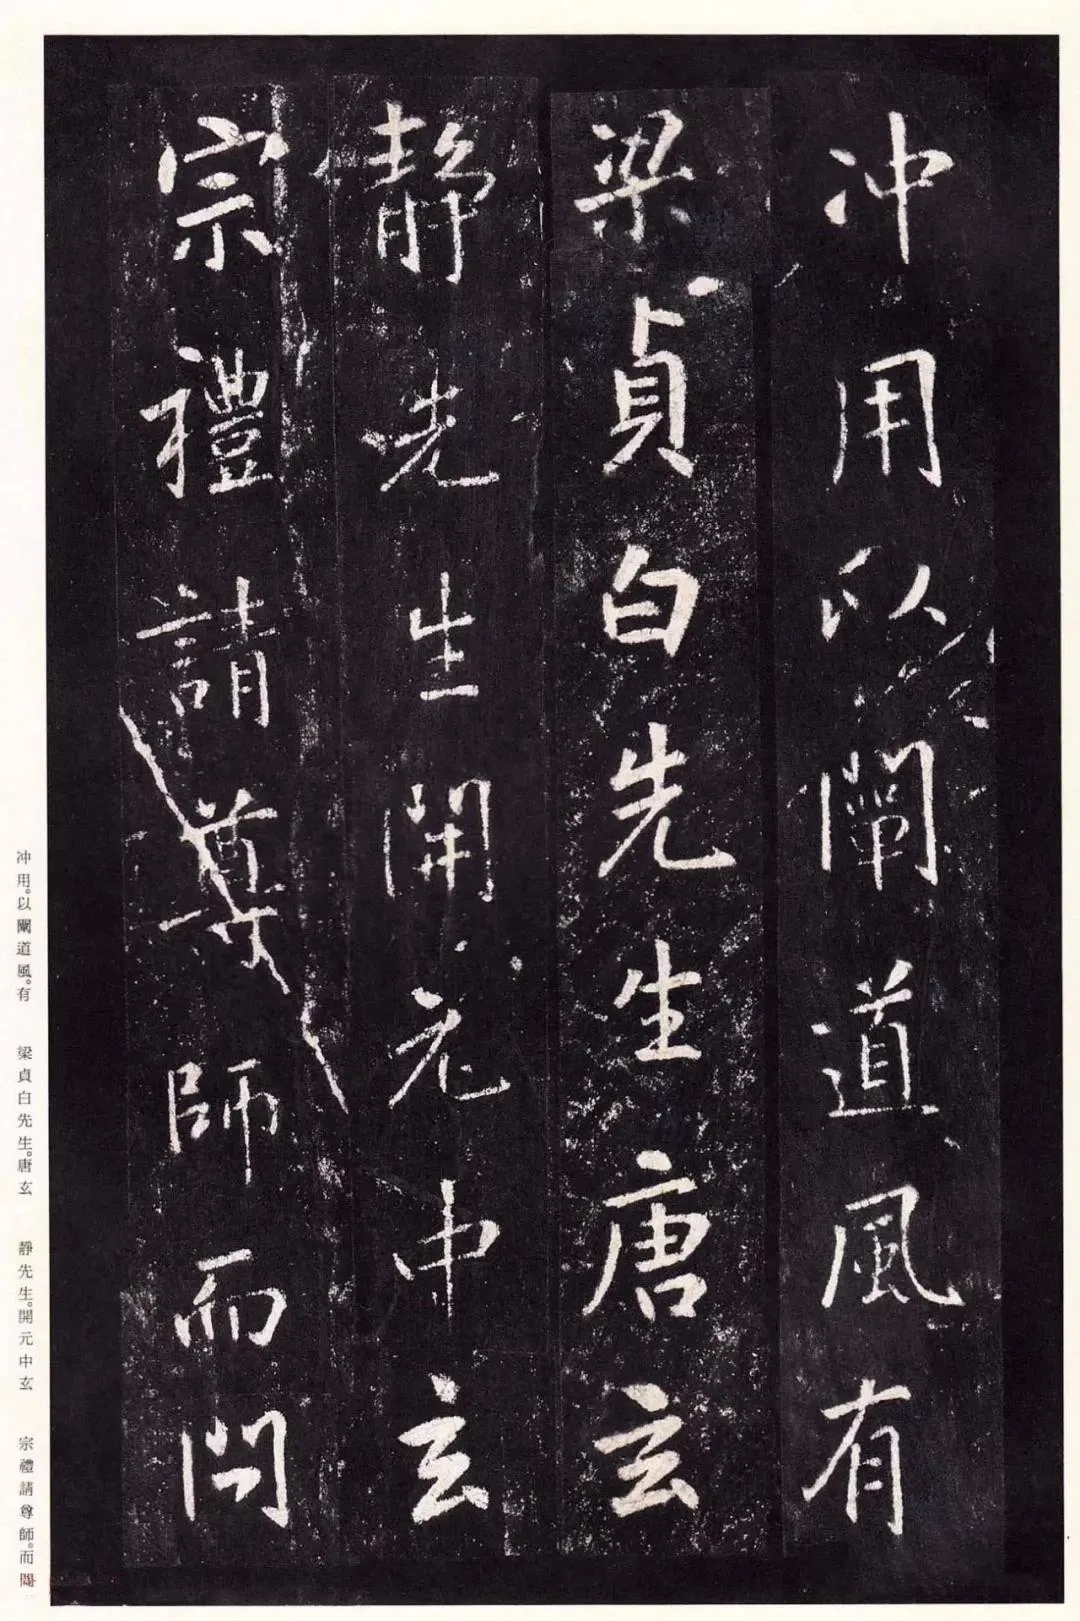 冲用以闡道風有
梁貞白先生唐玄
靜先生開元中玄
宗禮請尊師而問
冲用。以闡道風。有
梁貞白先生。唐玄
靜先生。開元中玄
宗禮請尊師。而問